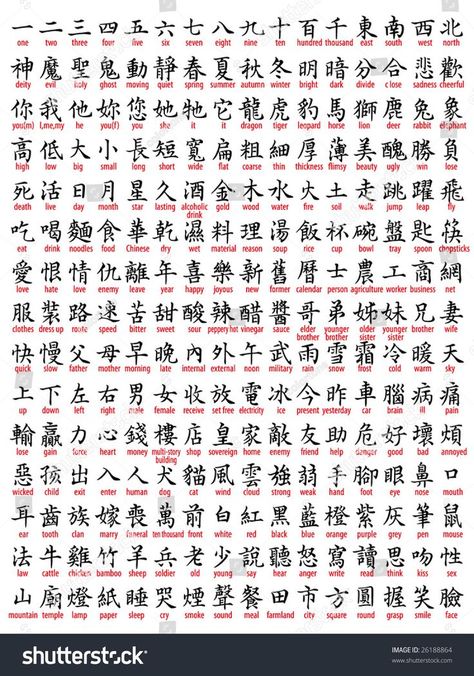 一二三四五六七八九十百千東南西北
one two three four five six seven eight nine ten hundred thousand east south west north
神魔聖鬼動靜春夏秋冬明暗分合悲歡
deity evil holy ghost moving quiet spring summer autumn winter bright dark divide close sadness cheerful
你我他妳您她牠它龍虎豹馬獅鹿兔象
you(m) I,me,my he you(f) you she it it dragon tiger leopard horse lion deer rabbit elephant
高低大小長短寬扁粗細厚薄美醜勝負
high low big small long short wide flat coarse thin thickness flimsy beauty ugly win lose
死活日月星久酒金木水火土走跳躍飛
death live day moon star lasting alcoholic drink gold wood water fire soil walk jump leap fly
吃喝麵食華乾濕料理湯飯杯碗盤匙筷
eat drink noodles food Chinese dry wet material reason soup rice cup bowl tray spoon chopsticks
愛恨情仇離年喜樂新舊曆士農工商網
love hate love enemy leave year happy enjoy new former calendar person agriculture worker business net
服裝路速苦甜酸辣醋醬哥弟姊妹兄妻
clothes dress up route speed bitter sweet sour peppery hot vinegar sauce elder brother younger brother elder sister younger sister brother wife
快慢父母早晚內外午武雨雪霜冷暖天
quick slow father mother morning late internal external noon military rain snow frost cold warm sky
上下左右男女收放電冰今昨車腦病痛
up down left right male female receive set free electricity ice present yesterday car brain ill pain
輸贏力心錢樓店皇家敵友助危好壞煩
lose gain force heart money multi-story building shop sovereign home enemy friend help danger good bad annoyed
惡孩出入人犬貓風雲強弱手腳眼鼻口
wicked child exit enter human dog cat wind cloud strong weak hand foot eye nose mouth
耳齒族嫁喪萬前白紅黑藍橙紫灰筆鼠
ear tooth clan marry funeral ten thousand front white red black blue orange purple grey pen mouse
法牛雞竹羊兵老少說聽怒寫讀思吻性
law cattle chicken bamboo sheep soldier old young say hear anger write read think kiss sex
山廟燈紙睡哭煙聲餐田市方圓握笑臉
mountain temple lamp paper sleep cry smoke sound meal farmland city square round grasp smile face
shutterstock
IMAGE ID: 26188864
www.shutterstock.com